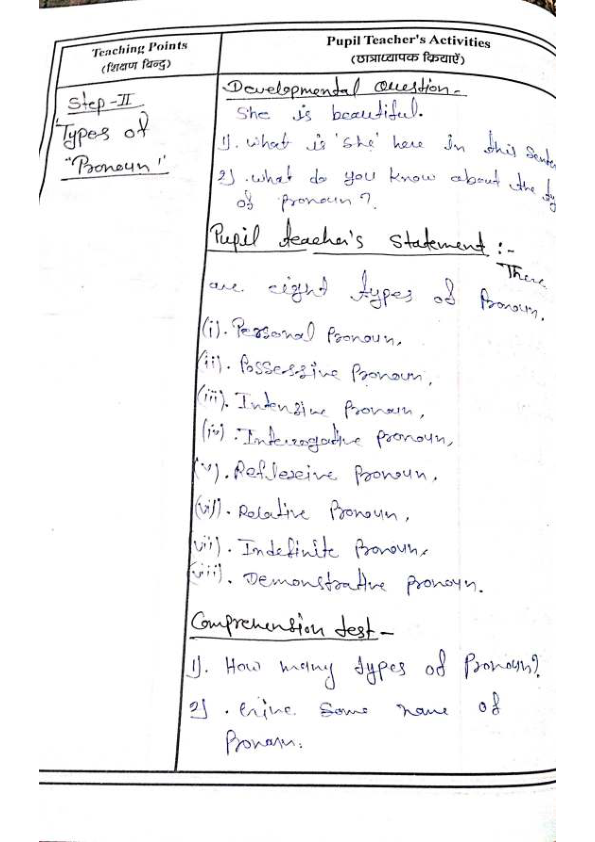 Teaching Points
(शिक्षण बिन्दु)
Pupil Teacher's Activities
(छात्राध्यापक क्रियाएँ)
Step-II
Types of
"Pronoun"
Developmental Question-
She is beautiful.
1). What is 'She' here in this Senten
2). What do you know about the ty
of pronoun?
Pupil teacher's Statement :-
There
are eight types of Pronoun.
(i). Personal Pronoun,
(ii). Possessive Pronoun,
(iii). Intensive Pronoun,
(iv). Interrogative pronoun,
(v). Reflexive Pronoun,
(vi). Relative Pronoun,
(vii). Indefinite Pronoun,
(viii). Demonstrative pronoun.
Comprehension test-
1). How many types of Pronoun?
2). Give Some name of
Pronoun.